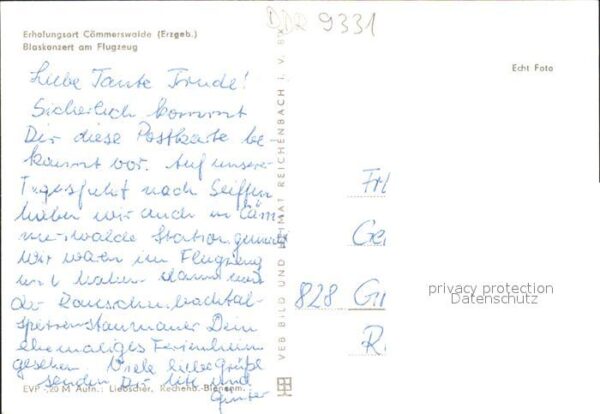 DDR 9331
Erholungsort Cämmerswalde (Erzgeb.)
Blaskonzert am Flugzeug
Echt Foto
Liebe Tante Trude!
Sicherlich kommt
Dir diese Postkarte be
kannt vor. Auf unserer
Tagesfahrt nach Seiffen
haben wir auch in Cäm
merswalde Station gemacht.
Wir waren im Flugzeug
und haben dann von
der Rauschenbachtal-
sperrenstaumauer Dein
ehemaliges Ferienheim
gesehen. Viele liebe Grüße
senden Dir Ute und
Günter
Frl
Ge
828 Gr
R.
privacy protection
Datenschutz
VEB BILD UND HEIMAT REICHENBACH I. V.
EVP -,20 M Aufn.: Liebscher, Rechenb.-Bienenm.